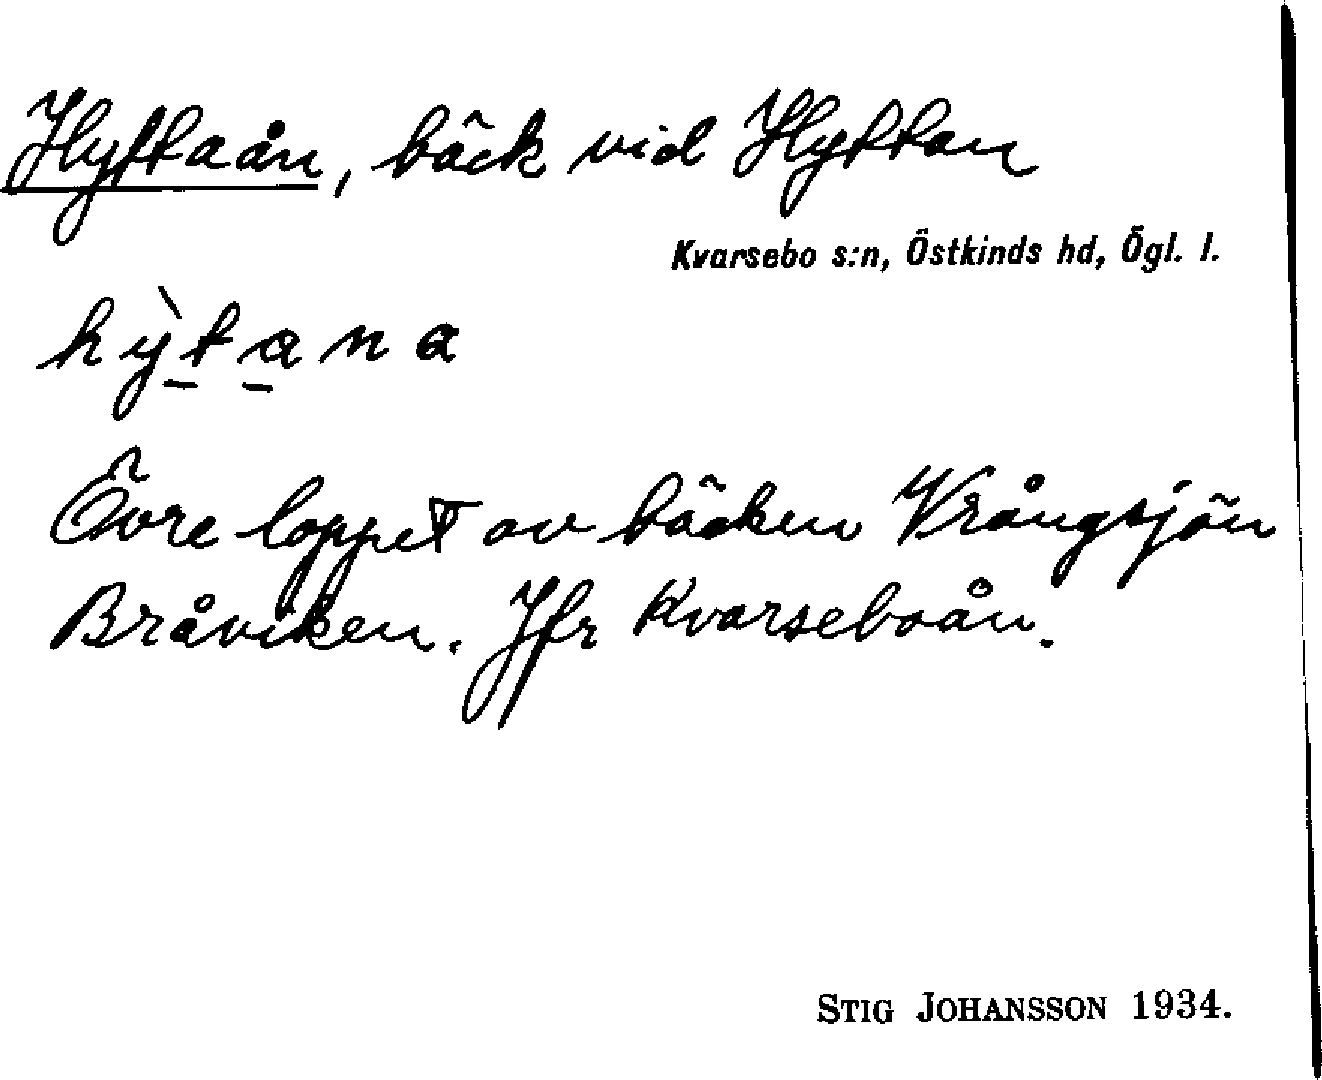 Hyttaån, bäck vid Hyttan
Kvarsebo s:n, Östkinds hd, Ögl. l.
hỳtana
Övre loppet av bäcken Vrångsjön
Bråviken. Jfr Kvarseboån.
STIG JOHANSSON 1934.